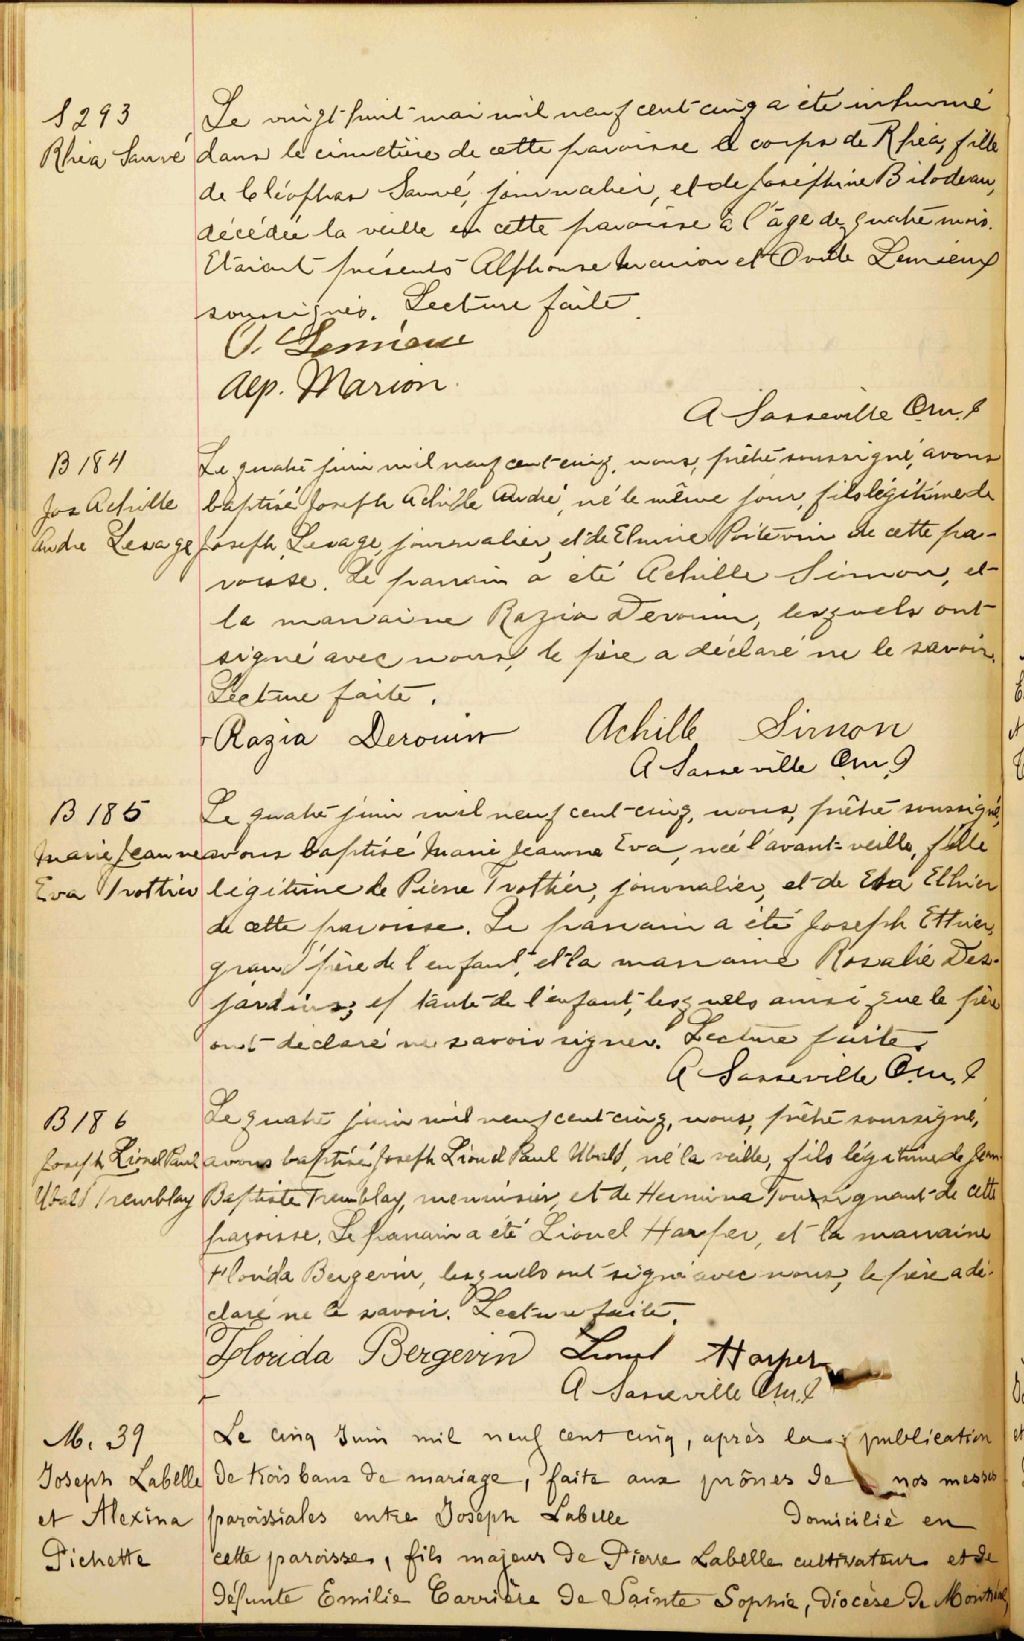 S 293
Rhéa Sauvé
Le vingt-huit mai mil neuf cent-cinq a été inhumé
dans le cimetière de cette paroisse le corps de Rhéa, fille
de Cléophas Sauvé, journalier, et de Joséphine Bilodeau,
décédée la veille en cette paroisse à l'âge de quatre mois.
Etaient présents Alphonse Marion et Ovide Lemieux
soussignés. Lecture faite.
O. Lemieux
Alp. Marion.
A Sasseville O.m.I
B 184
Jos Achille
André Lesage
Le quatre juin mil neuf cent-cinq, nous, prêtre soussigné, avons
baptisé Joseph Achille André, né le même jour, fils légitime de
Joseph Lesage, journalier, et de Elmire Poitevin de cette pa-
roisse. Le parrain a été Achille Simon, et
la marraine Razia Derouin, lesquels ont
signé avec nous, le père a déclaré ne le savoir.
Lecture faite.
Razia Derouin Achille Simon
A Sasseville O.m.I
B 185
Marie Jeanne
Eva Trottier
Le quatre juin mil neuf cent-cinq, nous, prêtre soussigné,
avons baptisé Marie Jeanne Eva, née l'avant-veille, fille
légitime de Pierre Trottier, journalier, et de Eva Ethier
de cette paroisse. Le parrain a été Joseph Ethier,
grand'père de l'enfant, et la marraine Rosalie Des-
jardins, tante de l'enfant, lesquels ainsi que le père
ont déclaré ne savoir signer. Lecture faite.
A Sasseville O.m.I
B 186
Joseph Lionel Paul
Ubald Tremblay
Le quatre juin mil neuf cent-cinq, nous, prêtre soussigné,
avons baptisé Joseph Lionel Paul Ubald, né la veille, fils légitime de Jean
Baptiste Tremblay, menuisier, et de Hermina Toussignant de cette
paroisse. Le parrain a été Lionel Harper, et la marraine
Florida Bergevin, lesquels ont signé avec nous, le père a dé-
claré ne le savoir. Lecture faite.
Florida Bergevin Lionel Harper
A Sasseville O.m.I
M. 39
Joseph Labelle
et Alexina
Pichette
Le cinq Juin mil neuf cent cinq, après la publication
de trois bans de mariage, faite aux prônes de nos messes
paroissiales entre Joseph Labelle domicilié en
cette paroisse, fils majeur de Pierre Labelle cultivateur et de
défunte Emilie Carrière de Sainte Sophie, diocèse de Montréal,